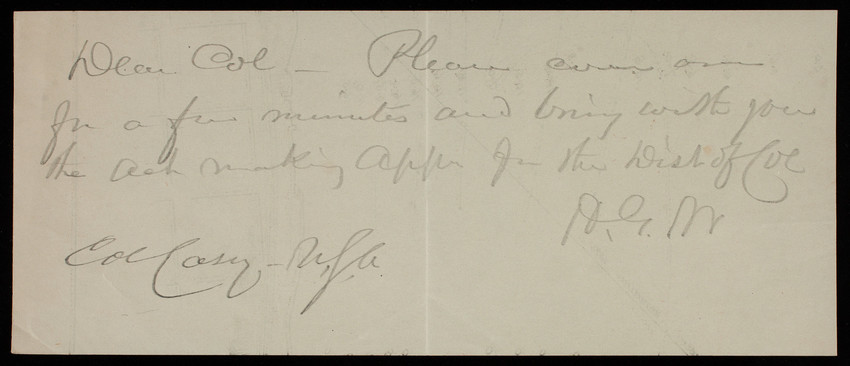 Dear Col – Please come over
for a few minutes and bring with you
the act making Appn for the Dist of Col
H.G.W
Col Casey – U.S.A.